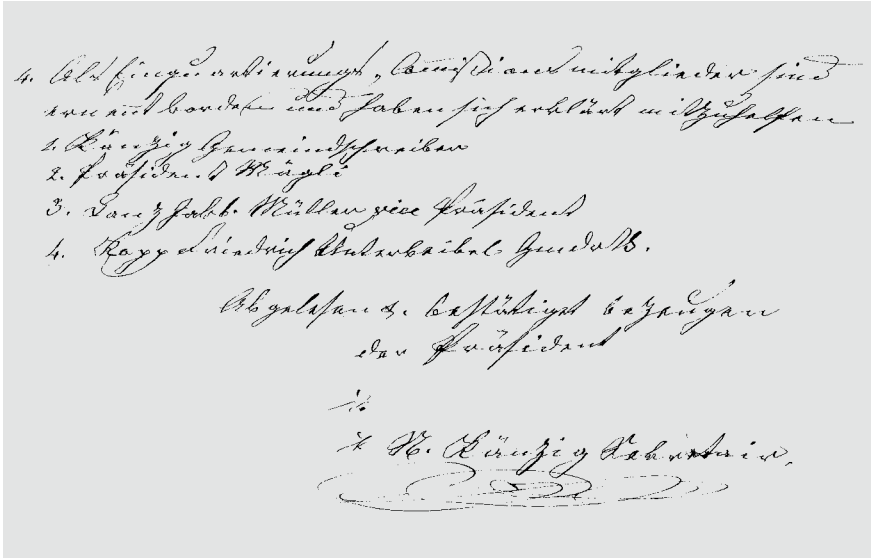 4. Als Einquartierungs, Comissionsmitglieder sind
ernent worden und haben sich erklärt mitzuhelfen
1. Känzig Gemeindschreiber
2. Präsident Mägli
3. Jakb. Müller vice Präsident
4. Kopp Friedrich Unterweibel
Abgelesen u. bestätiget bezeugen
der Präsident
N. Känzig Sekretair.